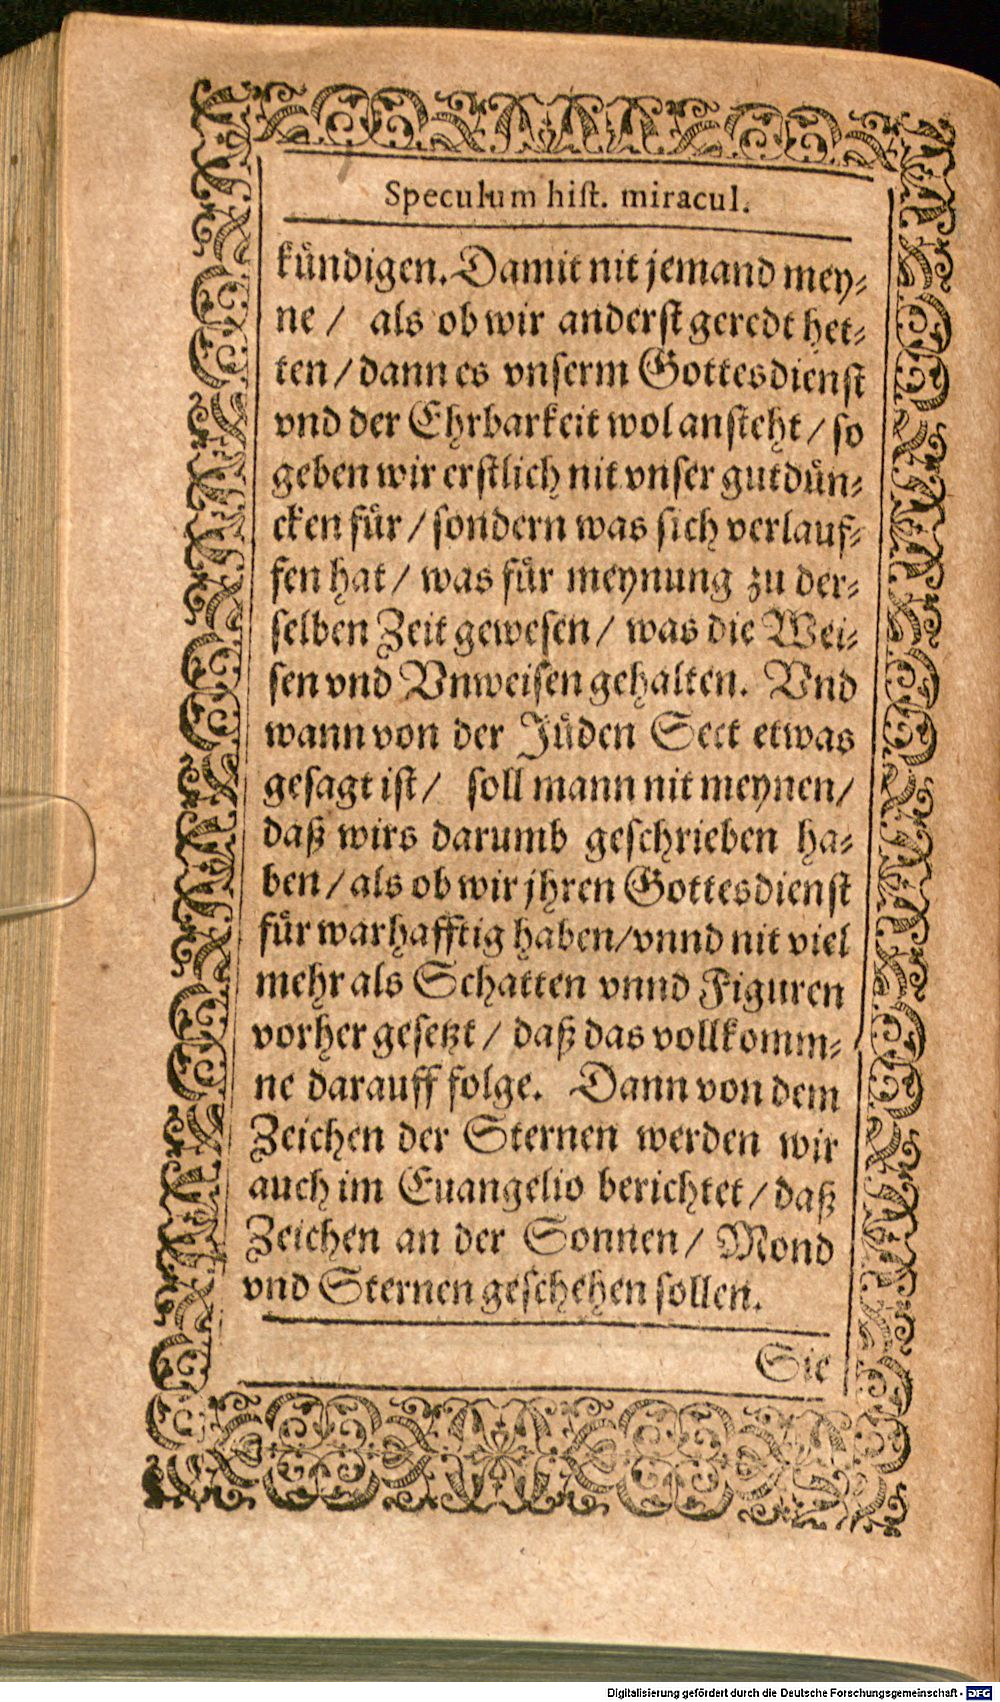 Speculum hist. miracul.
kündigen. Damit nit jemand mey⸗
ne / als ob wir anderst geredt het⸗
ten / dann es vnserm Gottesdienst
vnd der Ehrbarkeit wol ansteht / so
geben wir erstlich nit vnser gutdün⸗
cken für / sondern was sich verlauf⸗
fen hat / was für meynung zu der⸗
selben Zeit gewesen / was die Wei⸗
sen vnd Vnweisen gehalten. Vnd
wann von der Jüden Sect etwas
gesagt ist / soll mann nit meynen /
daß wirs darumb geschrieben ha⸗
ben / als ob wir jhren Gottesdienst
für warhafftig haben / vnnd nit viel
mehr als Schatten vnnd Figuren
vorher gesetzt / daß das vollkomm⸗
ne darauff folge. Dann von dem
Zeichen der Sternen werden wir
auch im Euangelio berichtet / daß
Zeichen an der Sonnen / Mond
vnd Sternen geschehen sollen.
Sie
Digitalisierung gefördert durch die Deutsche Forschungsgemeinschaft - DFG